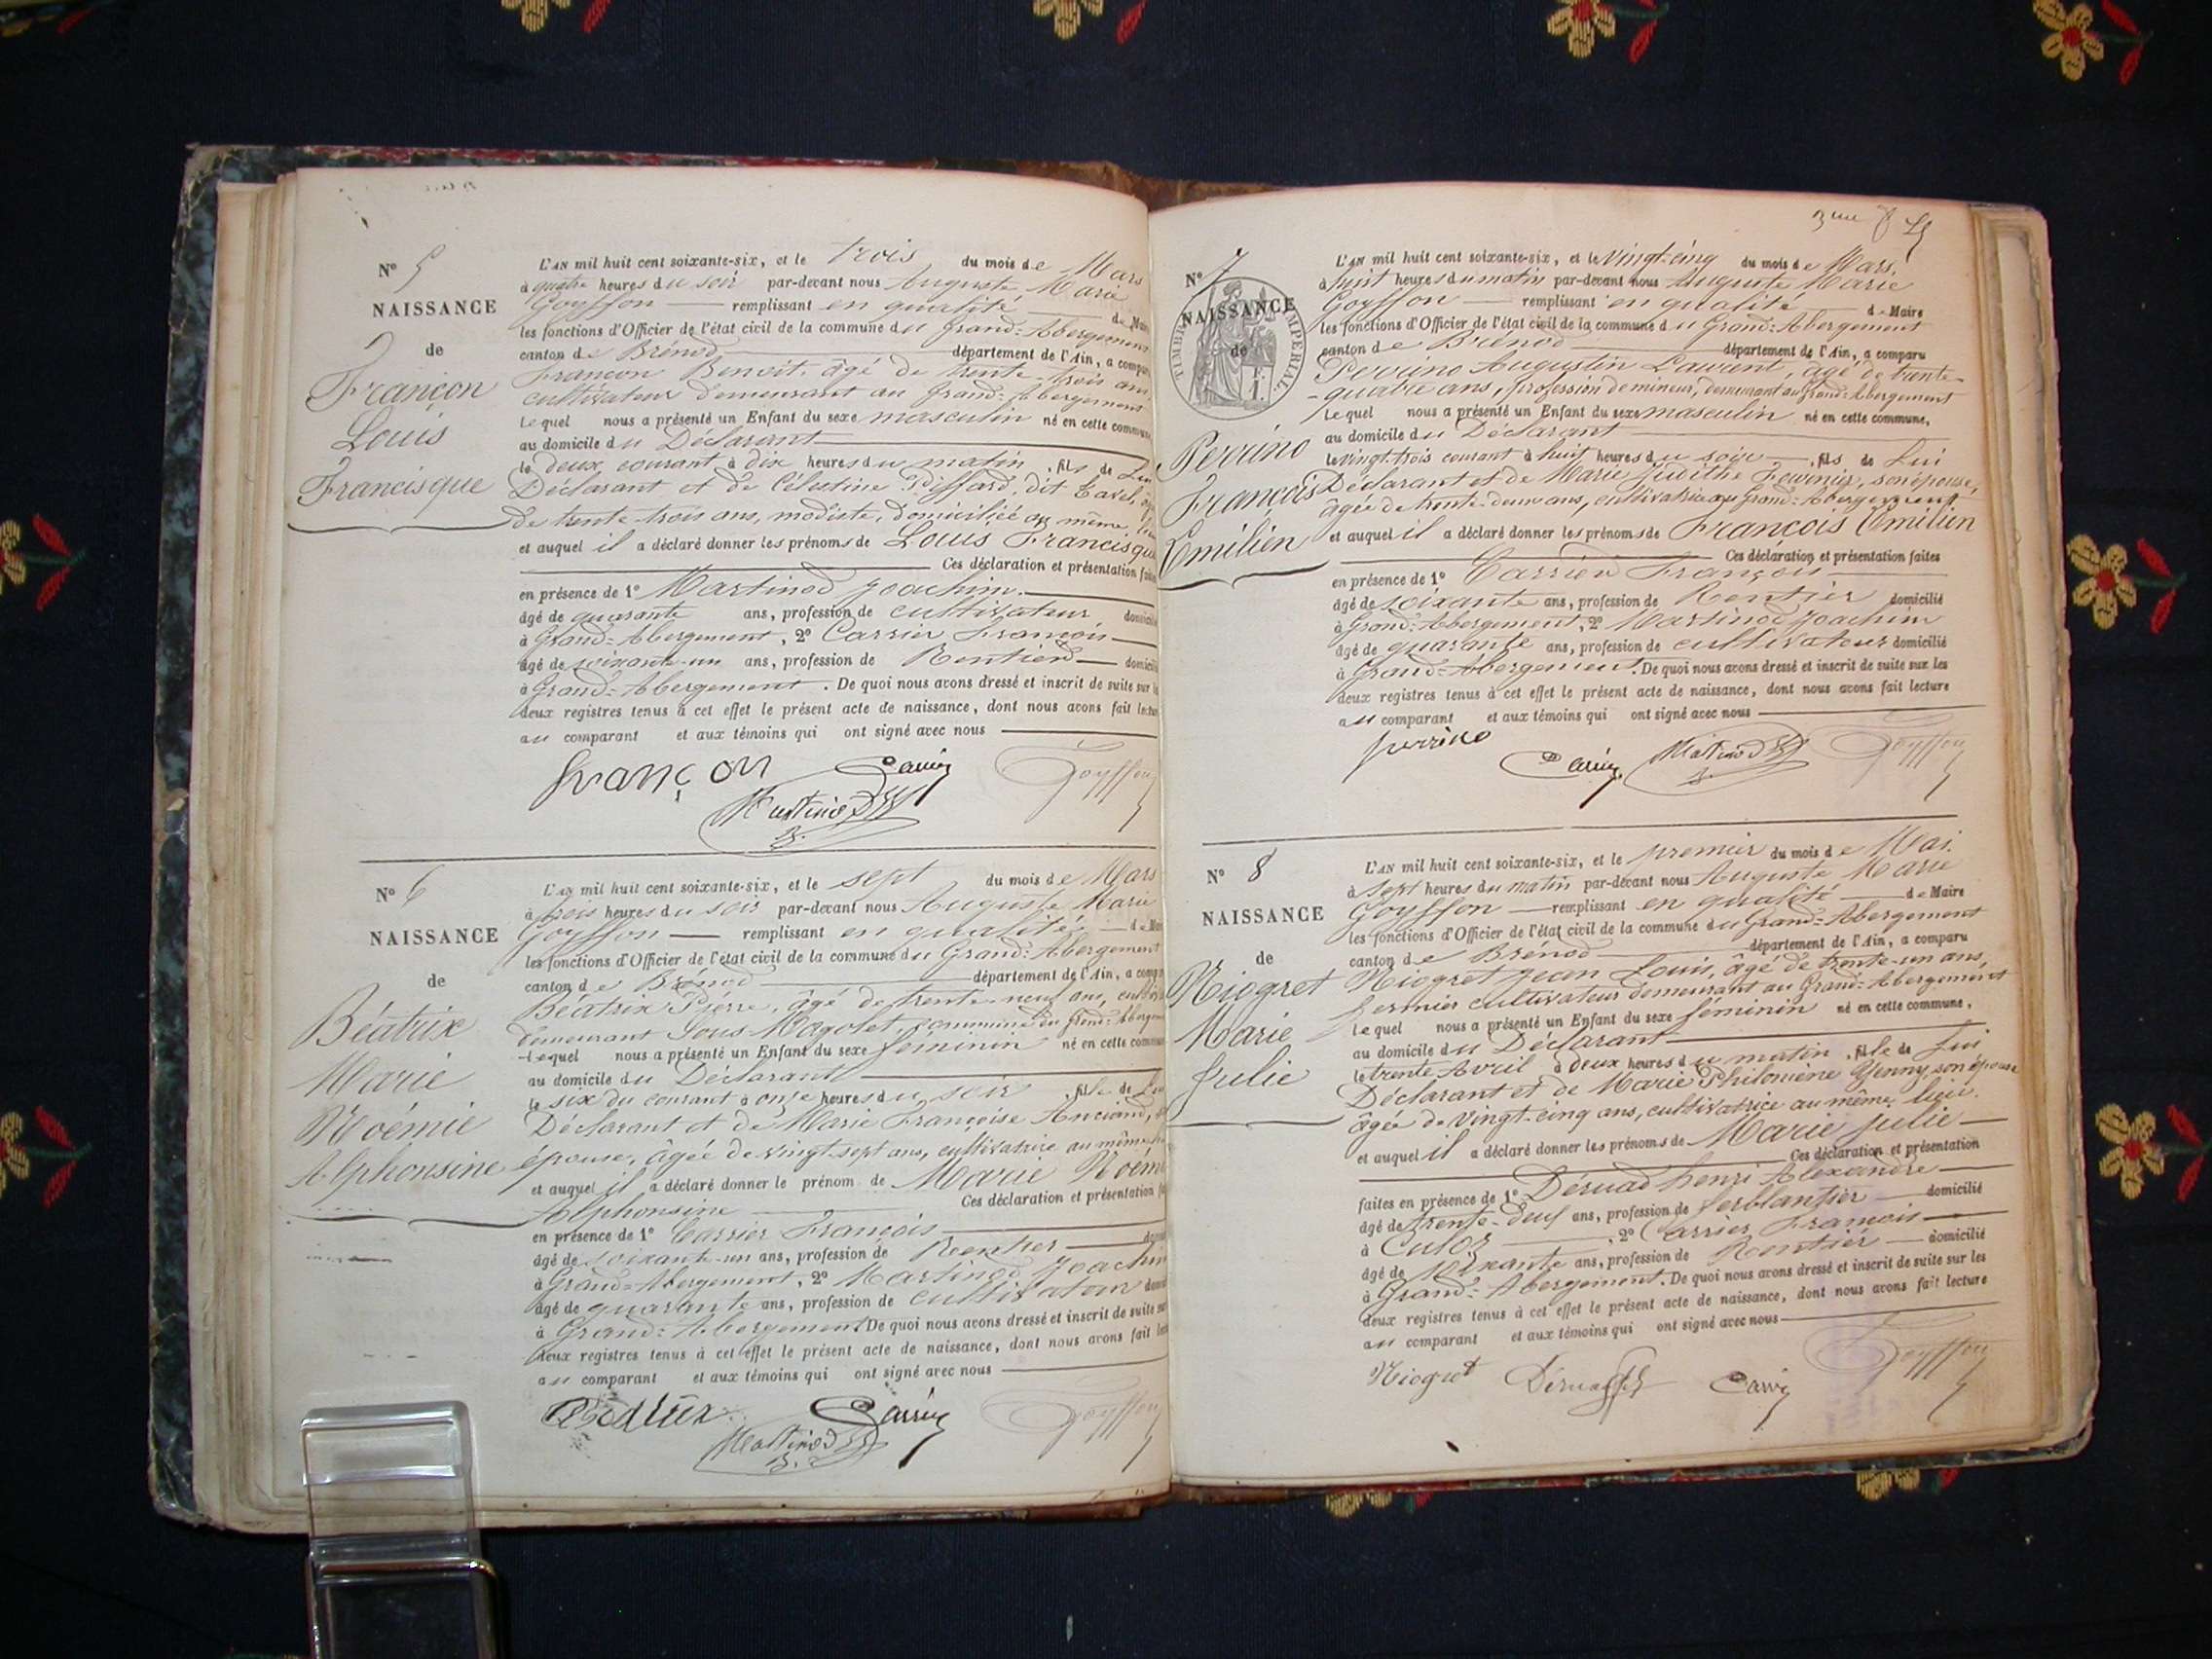 N° 5
NAISSANCE
de
Françon
Louis
Francisque
L'AN mil huit cent soixante-six, et le trois du mois de Mars
à quatre heures du soir par-devant nous Auguste Marie
Goyffon remplissant en qualité de Maire
les fonctions d'Officier de l'état civil de la commune du Grand-Abergement
canton de Brénod département de l'Ain, a comparu
Françon Benoit, âgé de trente-trois ans,
cultivateur demeurant au Grand-Abergement
Lequel nous a présenté un Enfant du sexe masculin né en cette commune,
au domicile du Déclarant
le deux courant à dix heures du matin, fils de Lui
Déclarant et de Célestine dit
de trente-trois ans, modiste, domiciliée au même lieu
et auquel il a déclaré donner les prénoms de Louis Francisque
Ces déclaration et présentation faites
en présence de 1° Martinod Joachim
âgé de quarante ans, profession de cultivateur domicilié
à Grand-Abergement, 2° Carrier François
âgé de soixante-un ans, profession de Rentier domicilié
à Grand-Abergement. De quoi nous avons dressé et inscrit de suite sur les
deux registres tenus à cet effet le présent acte de naissance, dont nous avons fait lecture
au comparant et aux témoins qui ont signé avec nous
françon Carrier Goyffon
Martinod
N° 6
NAISSANCE
de
Béatrix
Marie
Noémie
Alphonsine
L'AN mil huit cent soixante-six, et le sept du mois de Mars
à trois heures du soir par-devant nous Auguste Marie
Goyffon remplissant en qualité de Maire
les fonctions d'Officier de l'état civil de la commune du Grand-Abergement
canton de Brénod département de l'Ain, a comparu
Béatrix Pierre, âgé de trente-neuf ans,
demeurant Sous-Magolet, commune du Grand-Abergement
Lequel nous a présenté un Enfant du sexe féminin né en cette commune
au domicile du Déclarant
le six du courant à onze heures du soir, fille de Lui
Déclarant et de Marie Françoise
épouse, âgée de vingt-sept ans, cultivatrice au même
et auquel il a déclaré donner le prénom de Marie Noémie
Alphonsine Ces déclaration et présentation
en présence de 1° Carrier François
âgé de soixante-un ans, profession de Rentier
à Grand-Abergement, 2° Martinod Joachim
âgé de quarante ans, profession de cultivateur
à Grand-Abergement De quoi nous avons dressé et inscrit de suite sur
deux registres tenus à cet effet le présent acte de naissance, dont nous avons fait
au comparant et aux témoins qui ont signé avec nous
Béatrix Carrier Goyffon
Martinod
N° 7
TIMBRE IMPÉRIAL
NAISSANCE
de
Perrino
François
Emilien
L'AN mil huit cent soixante-six, et le vingt-cinq du mois de Mars,
à huit heures du matin par-devant nous Auguste Marie
Goyffon remplissant en qualité de Maire
les fonctions d'Officier de l'état civil de la commune du Grand-Abergement
canton de Brénod département de l'Ain, a comparu
Perrino Augustin Laurent, âgé de trente-
-quatre ans, profession de mineur, demeurant au Grand-Abergement
Lequel nous a présenté un Enfant du sexe masculin né en cette commune,
au domicile du Déclarant
le vingt-trois courant à huit heures du soir, fils de Lui
Déclarant et de Marie Judithe son épouse,
âgée de trente-deux ans, cultivatrice au Grand-Abergement
et auquel il a déclaré donner les prénoms de François Emilien
Ces déclaration et présentation faites
en présence de 1° Carrier François
âgé de soixante ans, profession de Rentier domicilié
à Grand-Abergement, 2° Martinod Joachim
âgé de quarante ans, profession de cultivateur domicilié
à Grand-Abergement. De quoi nous avons dressé et inscrit de suite sur les
deux registres tenus à cet effet le présent acte de naissance, dont nous avons fait lecture
au comparant et aux témoins qui ont signé avec nous
perrino Carrier Martinod Goyffon
N° 8
NAISSANCE
de
Niogret
Marie
Julie
L'AN mil huit cent soixante-six, et le premier du mois de Mai.
à sept heures du matin par-devant nous Auguste Marie
Goyffon remplissant en qualité de Maire
les fonctions d'Officier de l'état civil de la commune du Grand-Abergement
canton de Brénod département de l'Ain, a comparu
Niogret Jean Louis, âgé de trente-un ans,
fermier cultivateur demeurant au Grand-Abergement
Lequel nous a présenté un Enfant du sexe féminin né en cette commune,
au domicile du Déclarant
le trente Avril à deux heures du matin, fille de Lui
Déclarant et de Marie Philomène Yenny, son épouse
âgée de vingt-cinq ans, cultivatrice au même lieu.
et auquel il a déclaré donner les prénoms de Marie Julie
Ces déclaration et présentation
faites en présence de 1° Déruad henri Alexandre
âgé de trente-deux ans, profession de ferblantier domicilié
à Culoz, 2° Carrier François
âgé de soixante ans, profession de Rentier domicilié
à Grand-Abergement. De quoi nous avons dressé et inscrit de suite sur les
deux registres tenus à cet effet le présent acte de naissance, dont nous avons fait lecture
au comparant et aux témoins qui ont signé avec nous
Niogret Déruad Carrier Goyffon